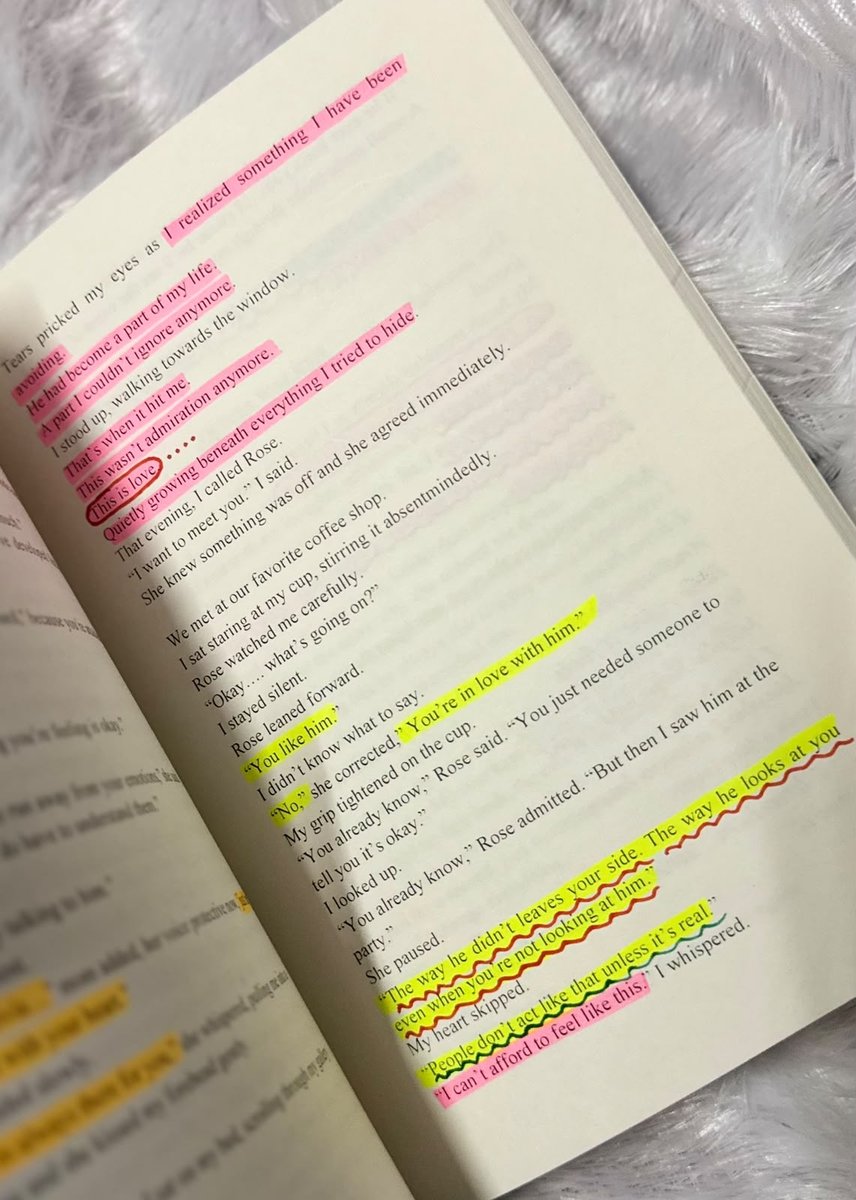 much.”
ve developed
because you're
you're feeling is okay.”
run away from your emotions,”
have to understand them.”
talking to him.”
mom added, her voice protective
with your heart”
always there for you,” she whispered, pulling me
and she kissed my forehead
on my bed, scrolling through my
Tears pricked my eyes as I realized something I have been
avoiding.
He had become a part of my life.
A part I couldn’t ignore anymore.
I stood up, walking towards the window.
That’s when it hit me.
This wasn’t admiration anymore.
This is love.
Quietly growing beneath everything I tried to hide.
That evening, I called Rose.
“I want to meet you.” I said.
She knew something was off and she agreed immediately.
We met at our favorite coffee shop.
I sat staring at my cup, stirring it absentmindedly.
Rose watched me carefully.
“Okay…. what’s going on?”
I stayed silent.
Rose leaned forward.
“You like him.”
I didn’t know what to say.
“No,” she corrected.” You’re in love with him.”
My grip tightened on the cup.
“You already know,” Rose said. “You just needed someone to
tell you it’s okay.”
I looked up.
“You already know,” Rose admitted. “But then I saw him at the
party.”
She paused.
“The way he didn’t leaves your side. The way he looks at you
even when you’re not looking at him.”
My heart skipped.
“People don’t act like that unless it’s real.”
“I can’t afford to feel like this.” I whispered.